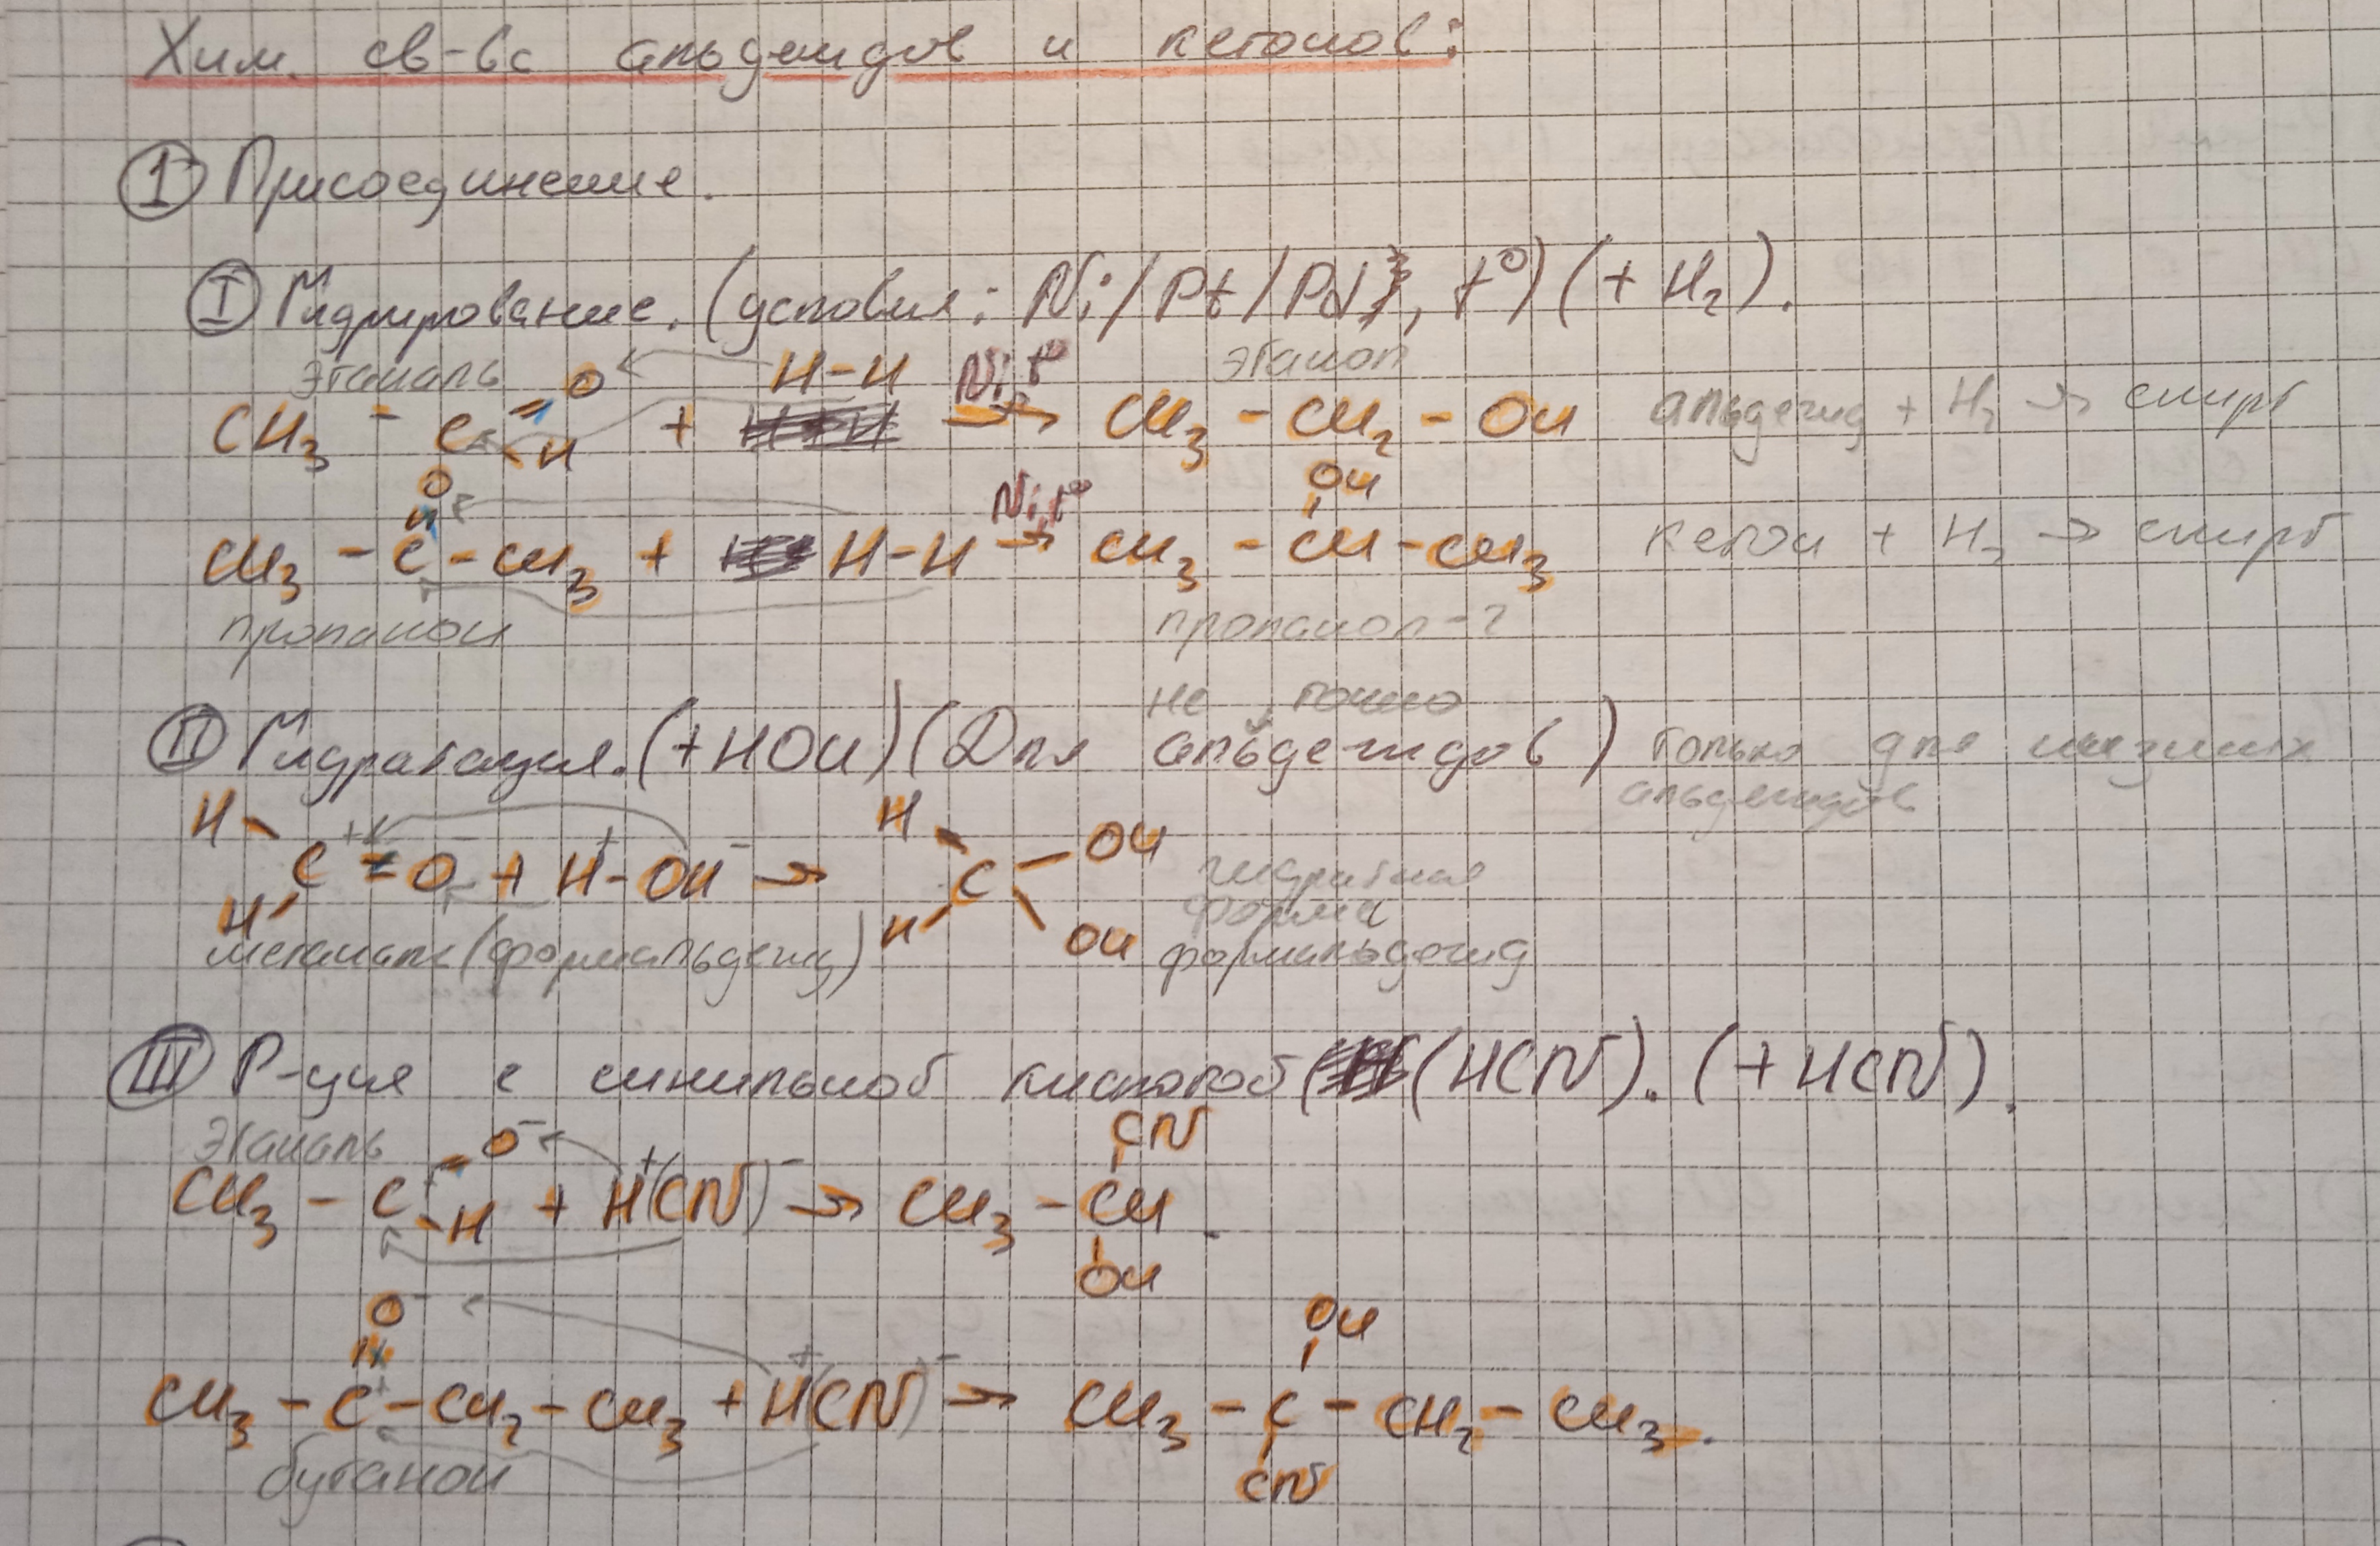 Хим. св-вс альдеидов и кетонов:
① Присоединение.
Ⓘ Гидрирование. (условия: Ni/Pt/Pd, t°) (+ H₂).
этаналь этанол
CH₃ - C =O -H + H-H Ni, t° → CH₃ - CH₂ - OH альдегид + H₂ → спирт
O OH
CH₃ - C - CH₃ + H-H Ni, t° → CH₃ - CH - CH₃ кетон + H₂ → спирт
пропанон пропанол-2
не точно
II Гидратация. (+HOH) (Для альдегидов) только для низших
альдегидов
H H OH
C⁺ = O⁻ + H⁺-OH⁻ → C гидратная
H H OH форма
метаналь (формальдегид) формальдегид
III Р-ция с синильной кислотой (HCN). (+HCN).
этаналь CN
CH₃ - C⁺ =O⁻ -H + H⁺(CN)⁻ → CH₃ - CH.
OH
O⁻ OH
CH₃ - C⁺ - CH₂ - CH₃ + H⁺(CN)⁻ → CH₃ - C - CH₂ - CH₃.
бутанон CN